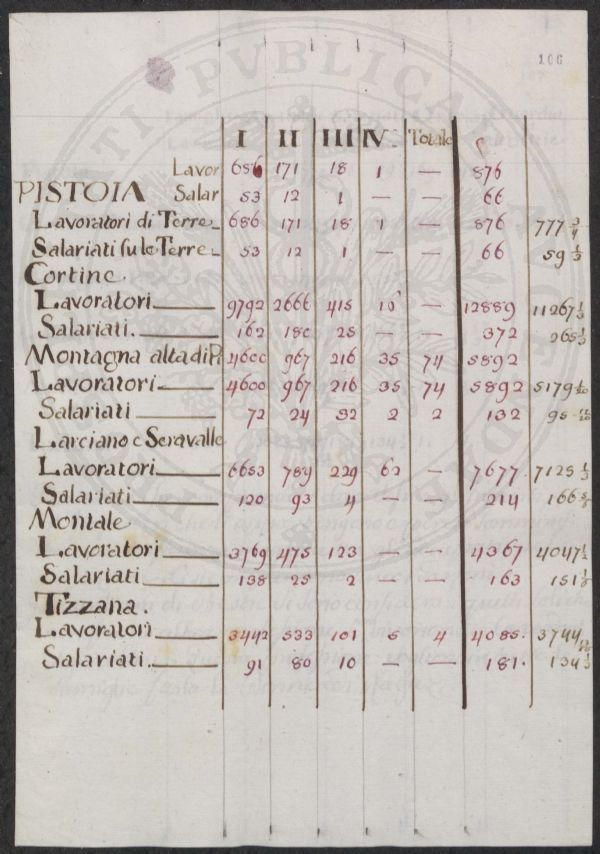 106
I II III IV Totale
Lavor 686 171 18 1 — 876
PISTOIA Salar 53 12 1 — — 66
Lavoratori di Terre 686 171 18 1 — 876 777 3/4
Salariati su le Terre 53 12 1 — — 66 59 1/3
Cortine
Lavoratori 9792 2666 415 16 — 12889 11267 1/3
Salariati. 162 180 28 — — 372 265 1/3
Montagna alta di 4600 967 216 35 74 5892
Lavoratori 4600 967 216 35 74 5892 5179
Salariati 72 24 32 2 2 132 95
Larciano e Seravalle
Lavoratori 6653 789 229 6 — 7677. 7125 1/3
Salariati 120 93 4 — — 214 166
Montale
Lavoratori 3769 475 123 — — 4367 4047
Salariati 138 25 2 — — 163 151 1/3
Tizzana.
Lavoratori 3442 533 101 5 4 4085. 3744
Salariati. 91 80 10 — — 181. 134 1/3